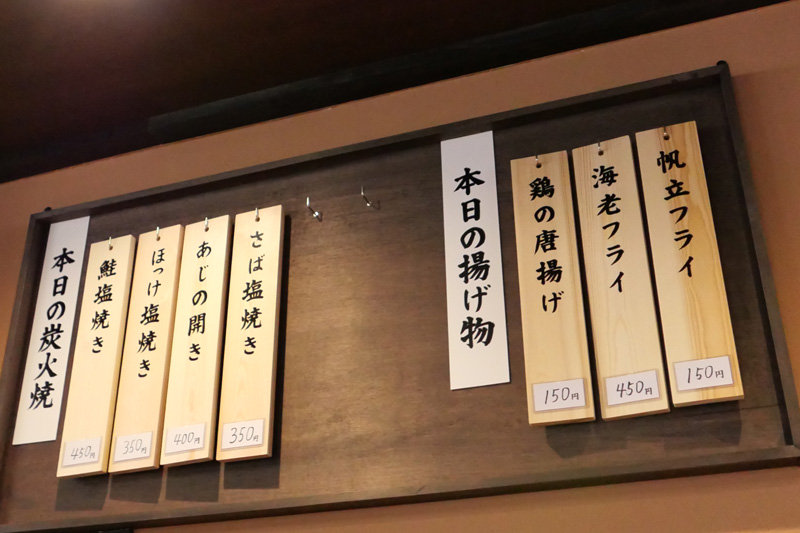 本日の炭火焼
鮭塩焼き
450円
ほっけ塩焼き
350円
あじの開き
400円
さば塩焼き
350円
本日の揚げ物
鶏の唐揚げ
150円
海老フライ
450円
帆立フライ
150円